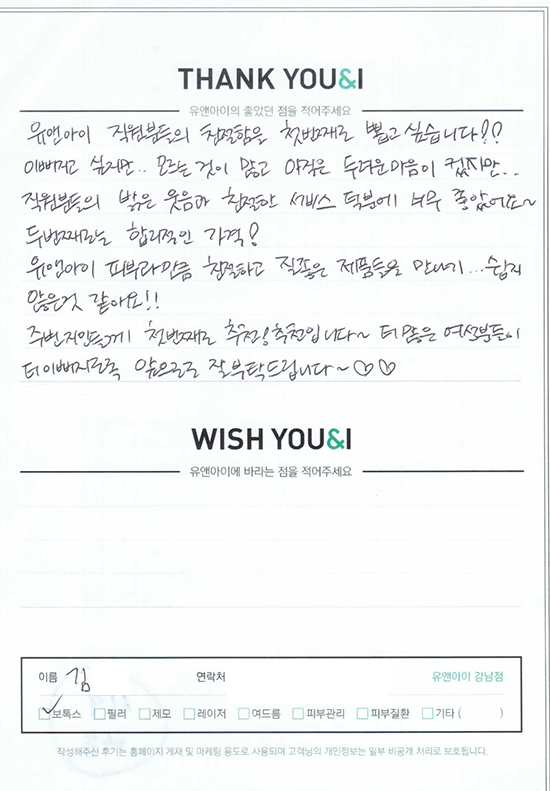 THANK YOU&I
유앤아이의 좋았던 점을 적어주세요
유앤아이 직원분들의 친절함을 첫번째로 뽑고 싶습니다??
이뻐지고 싶지만.. 모르는 것이 많고 아직은 두려운마음이 컸지만..
직원분들의 밝은 웃음과 친절한 서비스 덕분에 너무 좋았어요~
두번째로는 합리적인 가격!
유앤아이 피부과만큼 친절하고 질좋은 제품들을 만나기...쉽지
않은것 같아요!!
주변지인들께 첫번째로 추천!추천입니다~ 더 많은 여성분들이
더 이뻐지도록 앞으로도 잘 부탁드립니다~♡♡
WISH YOU&I
유앤아이에 바라는 점을 적어주세요
이름 김 연락처 유앤아이 강남점
보톡스 필러 제모 레이저 여드름 피부관리 피부질환 기타 ( )
작성해주신 후기는 홈페이지 게재 및 마케팅 용도로 사용되며 고객님의 개인정보는 일부 비공개 처리로 보호됩니다.